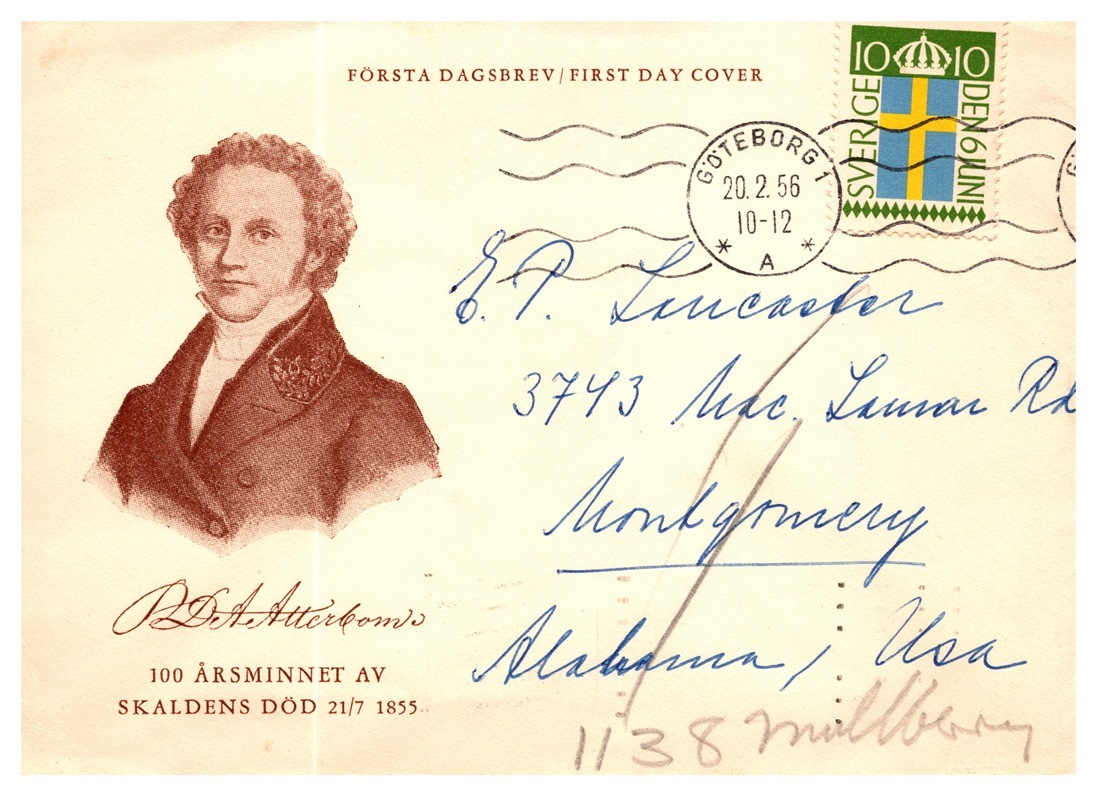 FÖRSTA DAGSBREV/FIRST DAY COVER
10 10
SVERIGE
DEN 6 JUNI
GÖTEBORG 1
20.2.56
10-12
* A *
E. P. Lancaster
3743 Mac. Lamar Rd
Montgomery
Alabama, Usa
1138 Mullberry
P.D.A. Atterbom
100 ÅRSMINNET AV
SKALDENS DÖD 21/7 1855